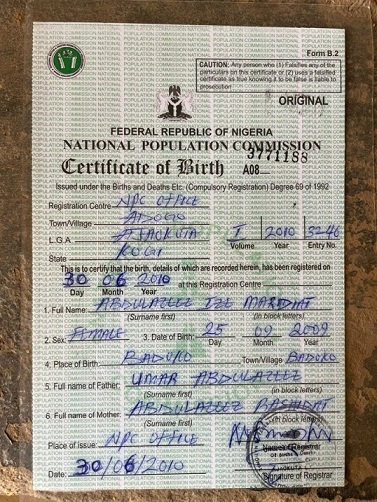 Form B.2
CAUTION: Any person who (1) Falsifies any of the
particulars on this certificate or (2) uses a falsified
certificate as true knowing it to be false is liable to
prosecution
ORIGINAL
FEDERAL REPUBLIC OF NIGERIA
NATIONAL POPULATION COMMISSION
3771188
Certificate of Birth A08
Issued under the Births and Deaths Etc. (Compulsory Registration) Degree 69 of 1992
Registration Centre NPC OFFICE
Town/Village ADOGO
L.G.A AJAOKUTA I 2010 3246
Volume Year Entry No.
State KOGI
This is to certify that the birth, details of which are recorded herein, has been registered on
30 06 2010 at this Registration Centre
Day Month Year
1. Full Name: ABDULAZEEZ IZE MARDIYAT
(Surname first) (in block letters)
2. Sex: FEMALE 3. Date of Birth: 25 09 2009
Day Month Year
4. Place of Birth: BADOKO Town/Village BADOKO
5. Full name of Father: UMAR ABDULAZEEZ
(Surname first) (in block letters)
6. Full name of Mother: ABDULAZEEZ RASHIDAT
(Surname first) (in block letters)
Place of issue: NPC OFFICE
Name of Registrar
Date: 30/06/2010
Signature of Registrar